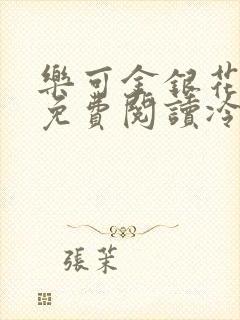 樂可金銀花
免費閱讀冷
張茉